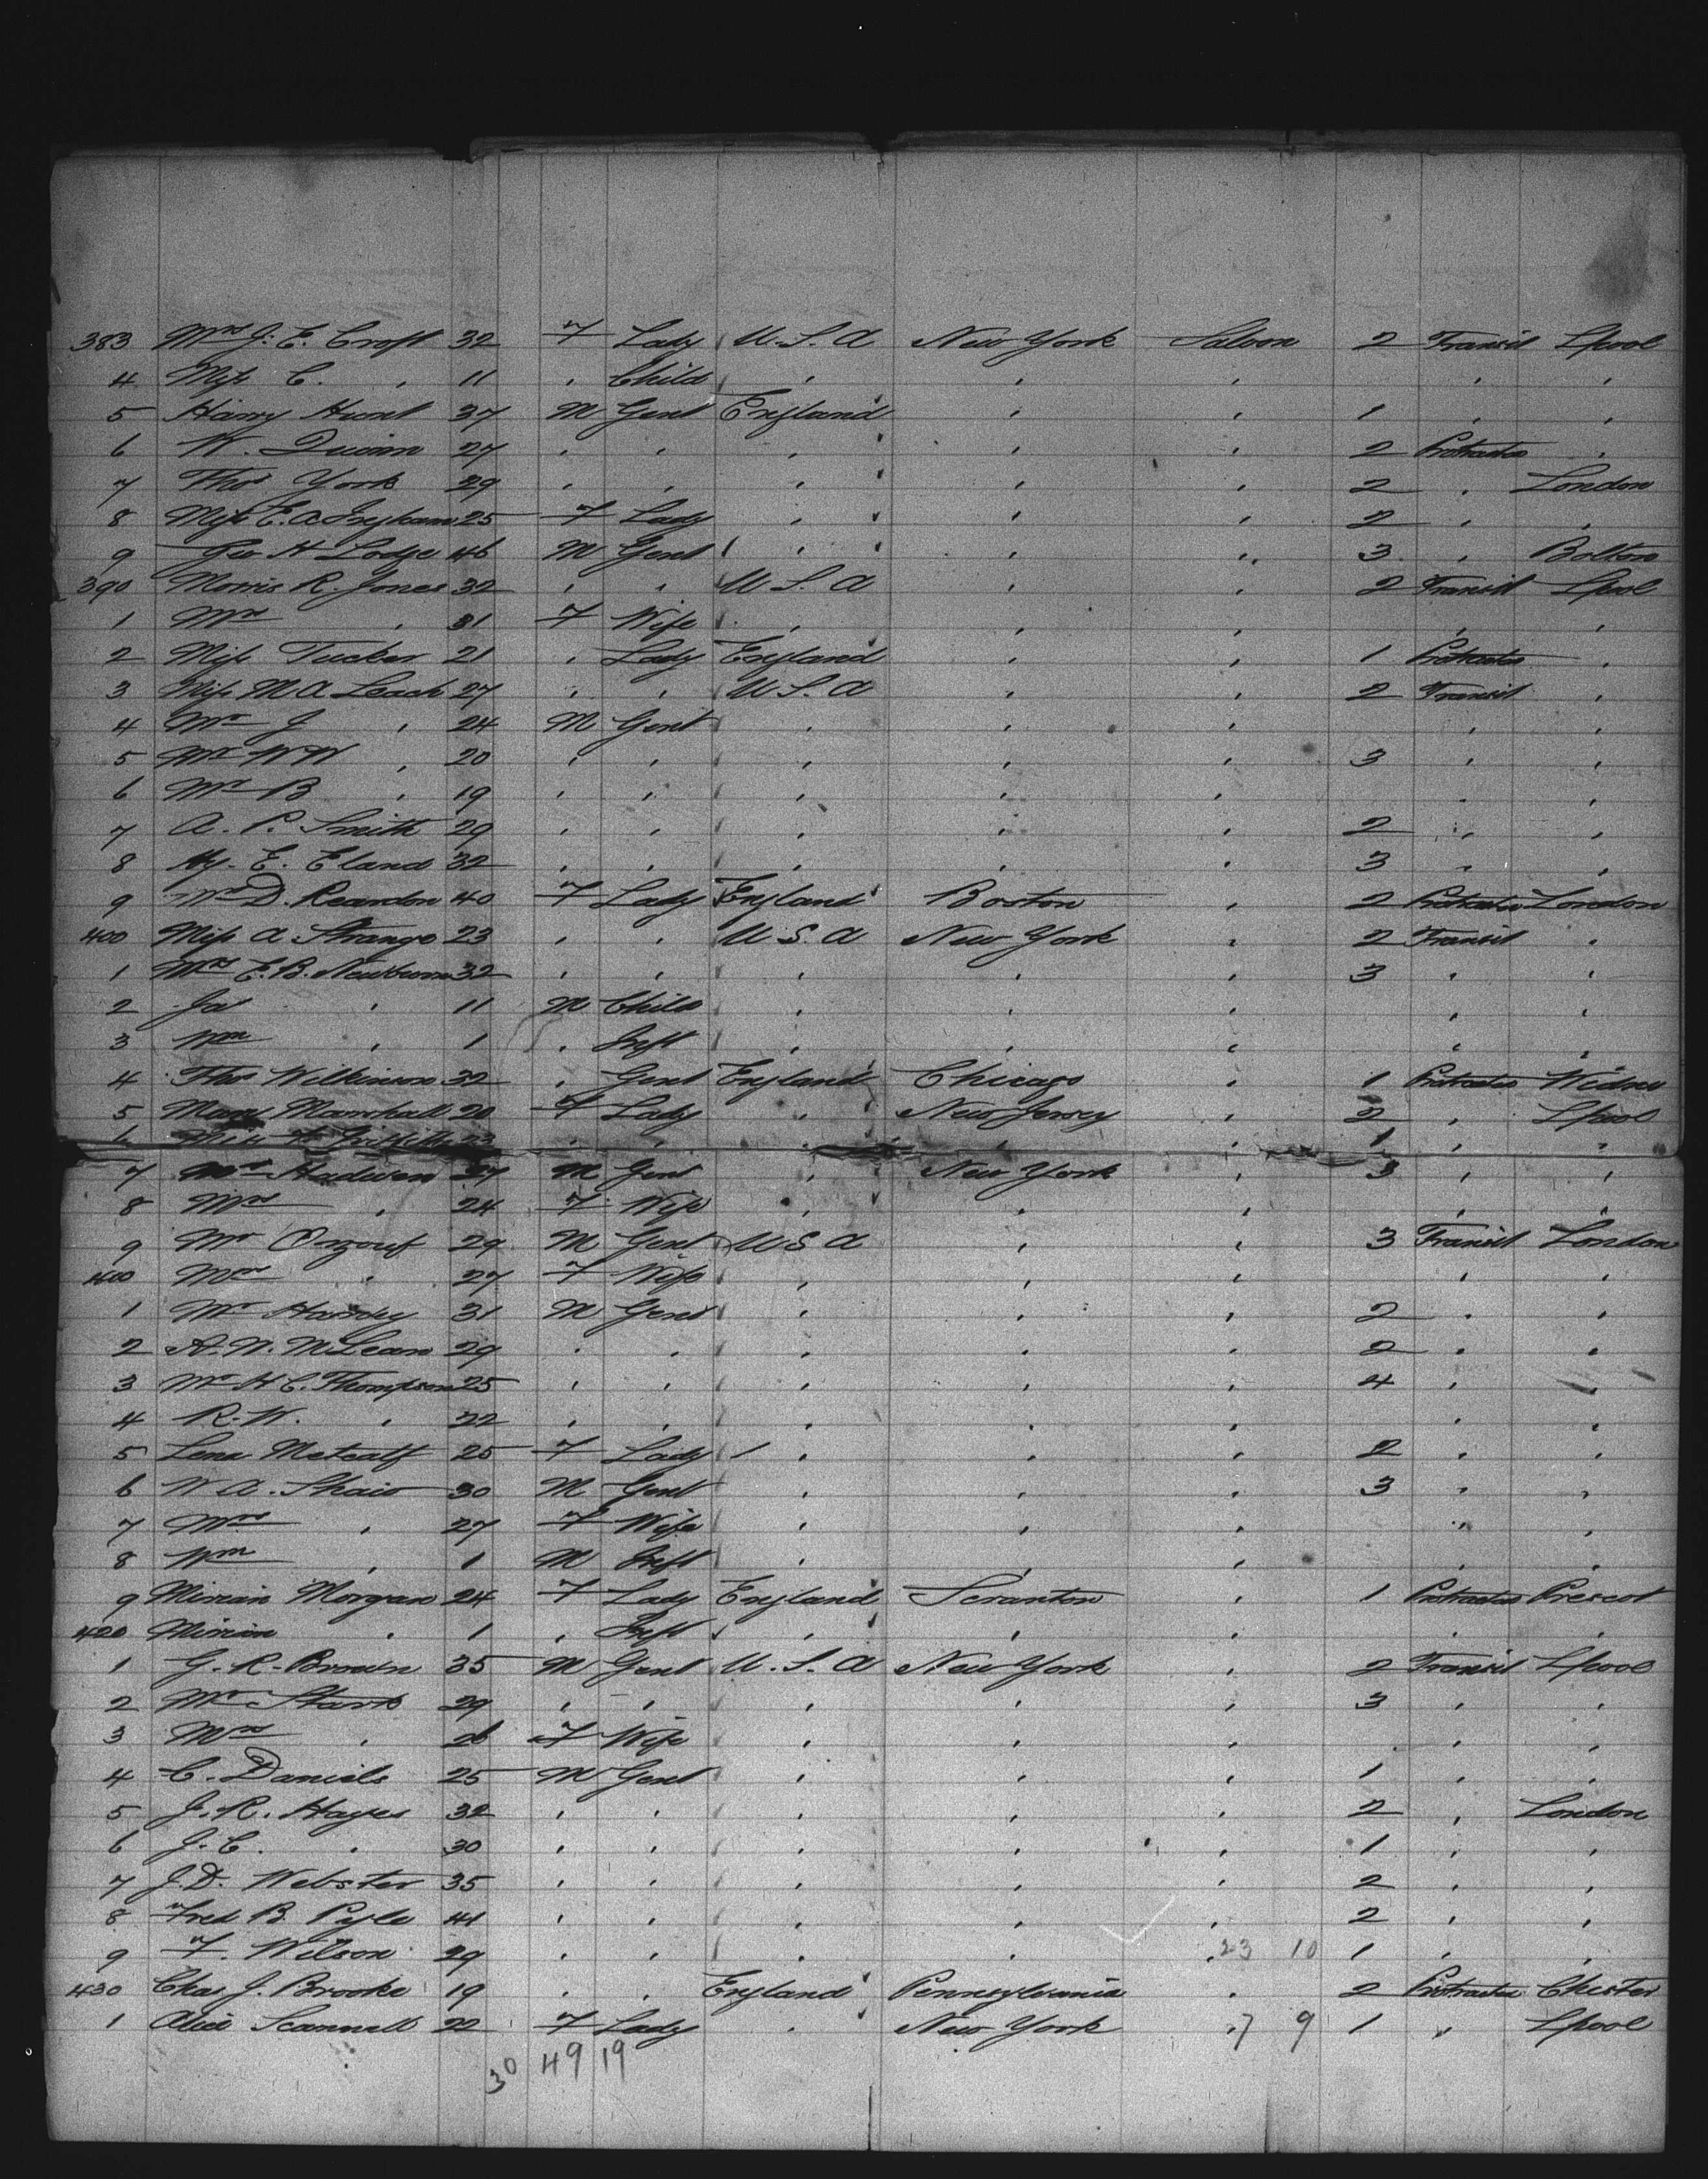 383 Mrs J. E. Croft 32 F Lady U.S.A New York Saloon 2 Transit Lpool
4 Miss C. " 11 " Child " " " " "
5 Harry Hunt 37 M Gent England " " 1 " "
6 W. Quinn 27 " " " " " 2 Protracted "
7 Thos York 29 " " " " " 2 " London
8 Miss E. A. Ingham 25 F Lady " " " 2 " "
9 Geo H Lodge 46 M Gent " " " 3 " Bolton
390 Morris R. Jones 32 " " U.S.A " " 2 Transit Lpool
1 Mrs " 31 F Wife " " " " "
2 Miss Tucker 21 " Lady England " " 1 Protracted "
3 Miss M A Leach 27 " " U S. A " " 2 Transit "
4 Mr J " 24 M Gent " " " " "
5 Mr W W " 20 " " " " " 3 " "
6 Mr B " 19 " " " " " " "
7 A. P. Smith 29 " " " " " 2 " "
8 Hy. E. Eland 32 " " " " " 3 " "
9 D. Reardon 40 F Lady England Boston " 2 Protracted London
400 Miss A Strange 23 " " U.S.A New York " 2 Transit "
1 Mrs E. B. 32 " " " " " 3 " "
2 Jas " 11 M Child " " " " "
3 Wm " 1 " Inft " " " " "
4 Thos Wilkinson 32 " Gent England Chicago " 1 Protracted Widnes
5 Mary Marshall 20 F Lady " New Jersey " 2 " Lpool
6 Miss F 23 " " " " " 1 " "
7 Mr Hadwen 27 M Gent " New York " 3 " "
8 Mrs " 24 F Wife " " " " "
9 Mr Orzouf 29 M Gent U S A " " 3 Transit London
Mrs " 27 F Wife " " " " "
1 Mr 31 M Gent " " " 2 " "
2 A. N. McLean 29 " " " " " 2 " "
3 Mr H C. Thompson 25 " " " " " 4 " "
4 R. W. " 22 " " " " " " "
5 Lena Metcalf 25 F Lady " " " 2 " "
6 W A. Shaw 30 M Gent " " " 3 " "
7 Mrs " 27 F Wife " " " " "
8 Wm " 1 M Inft " " " " "
9 Miriam Morgan 24 F Lady England Scranton " 1 Protracted Prescot
420 Miriam " 1 " Inft " " " " "
1 G. R. Brown 35 M Gent U.S.A New York " 2 Transit Lpool
2 Mr Stark 29 " " " " " 3 " "
3 Mrs " 26 F Wife " " " " "
4 C. Daniels 25 M Gent " " " 1 " "
5 J. R. Hayes 32 " " " " " 2 " London
6 J. C. " 30 " " " " " 1 " "
7 J. D. Webster 35 " " " " " 2 " "
8 Fred B. Pyle 41 " " " " " 2 " "
9 F. Wilson 29 " " " " " 23 10 1 " "
430 Chas J. Brooke 19 " " England Pennsylvania " 2 Protracted Chester
1 Alice Scannell 22 F Lady " New York " 7 9 1 " Lpool
30 49 19